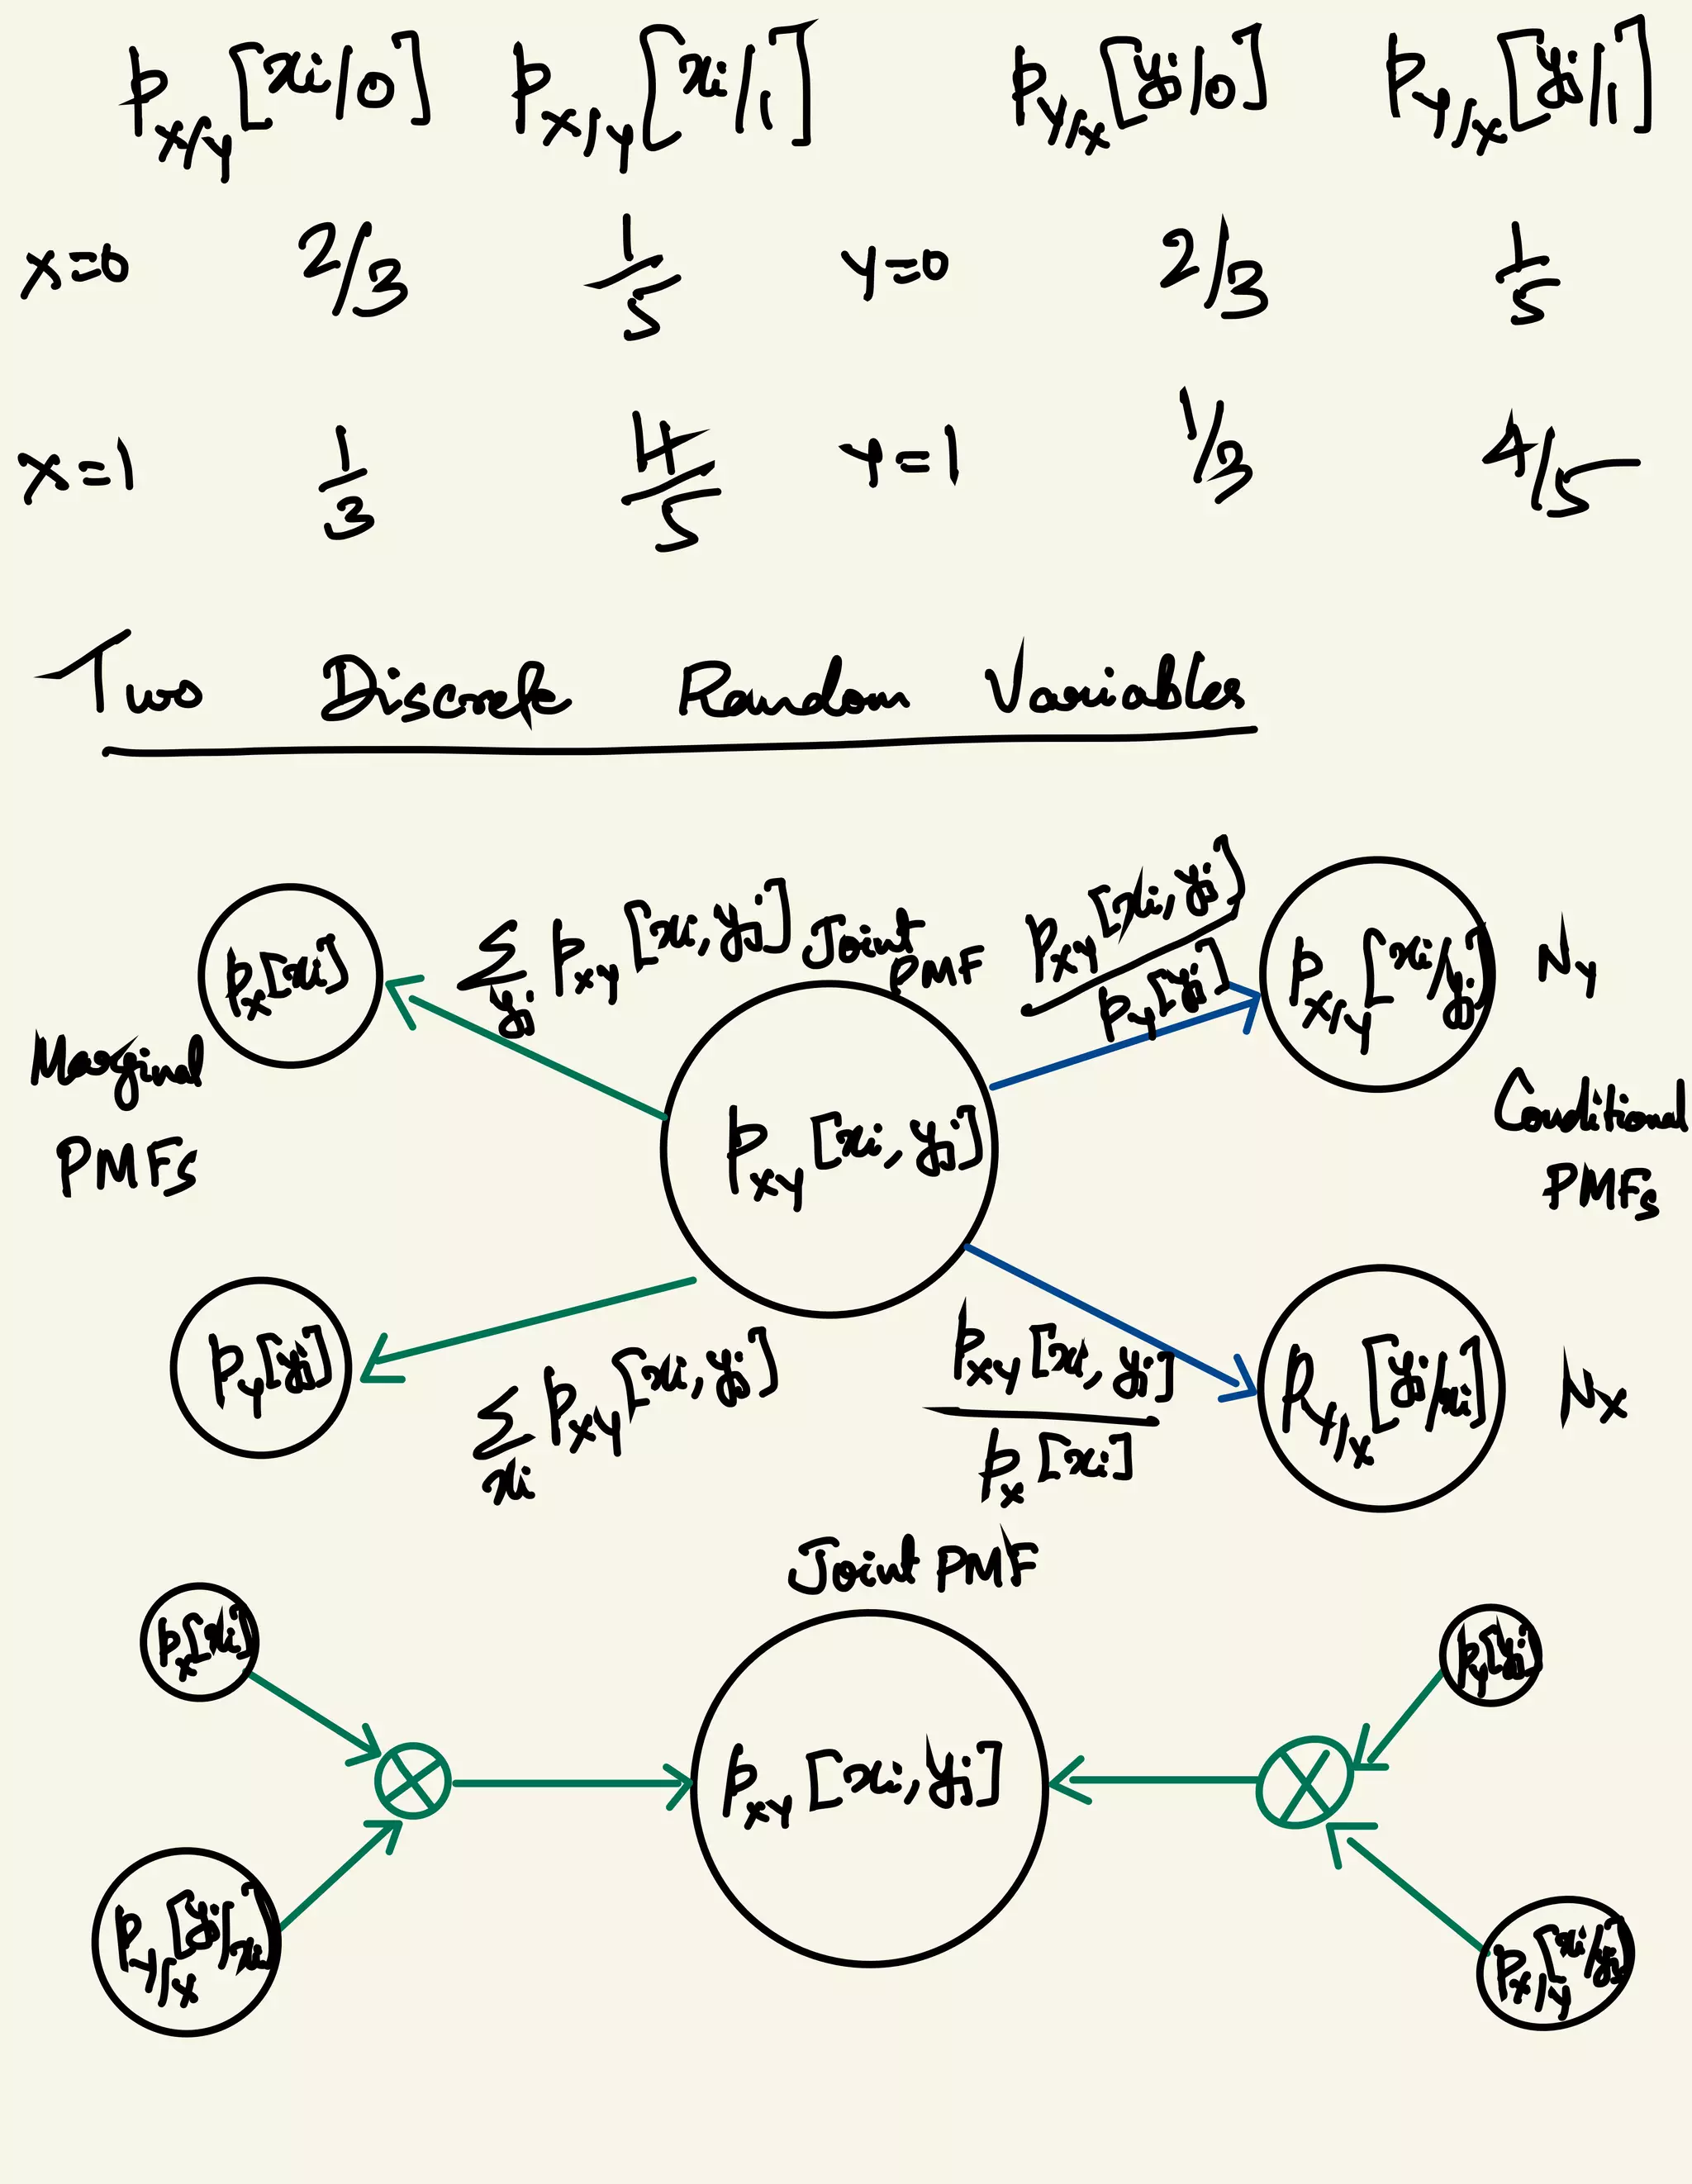 p_{X/Y}[xi/0] p_{X/Y}[xi/1] p_{Y/X}[yj/0] p_{Y/X}[yj/1]
X=0 2/3 1/5 Y=0 2/3 1/5
X=1 1/3 4/5 Y=1 1/3 4/5
Two Discrete Random Variables
p_X[xi] Σ_{yj} p_{XY}[xi, yj] Joint PMF p_{XY}[xi, yj] / p_Y[yj] p_{X/Y}[xi/yj] N_Y
Marginal PMFs p_{XY}[xi, yj] Conditional PMFs
p_Y[yj] Σ_{xi} p_{XY}[xi, yj] p_{XY}[xi, yj] / p_X[xi] p_{Y/X}[yj/xi] N_X
Joint PMF
p_X[xi] p_Y[yj]
p_{XY}[xi, yj]
p_{Y/X}[yj/xi] p_{X/Y}[xi/yj]